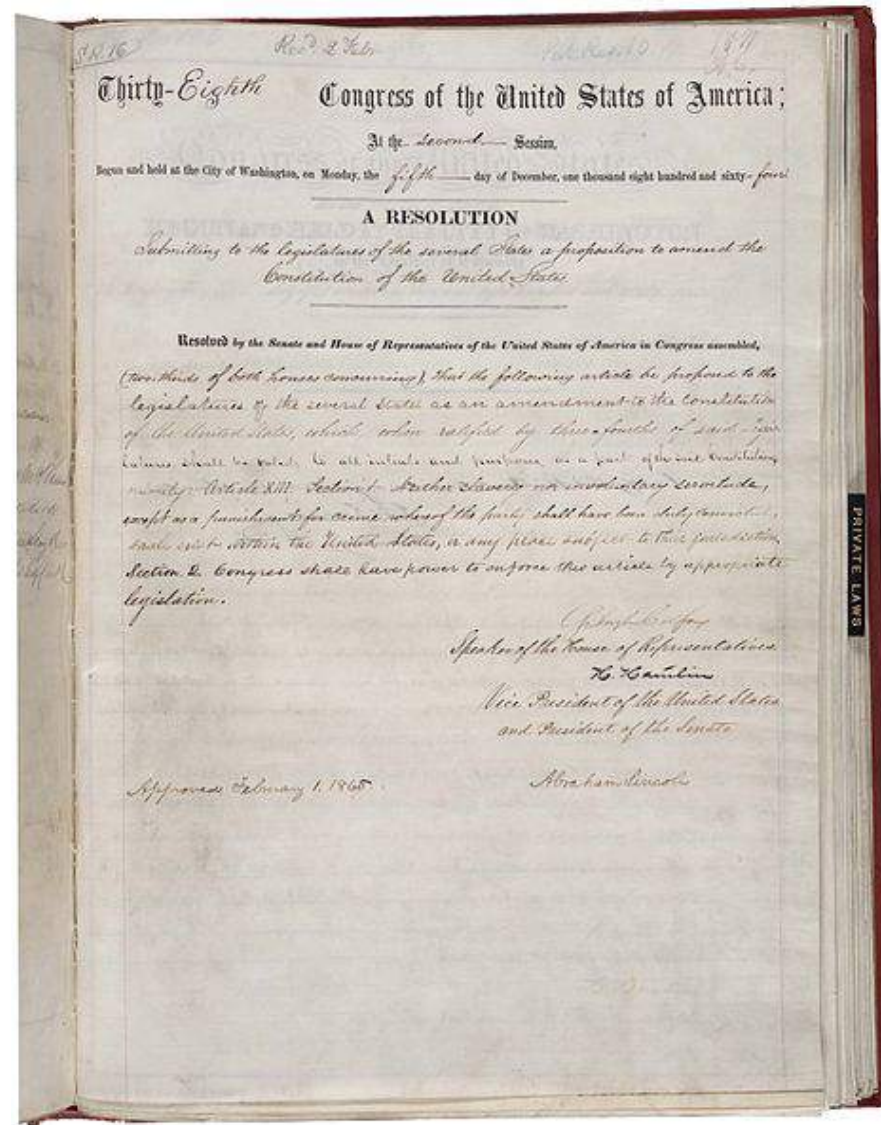 S.R. 16
Rec'd 2 Feb.
Thirty-Eighth Congress of the United States of America;
At the second Session,
Begun and held at the City of Washington, on Monday, the fifth day of December, one thousand eight hundred and sixty-four
A RESOLUTION
Submitting to the legislatures of the several States a proposition to amend the
Constitution of the United States.
Resolved by the Senate and House of Representatives of the United States of America in Congress assembled,
(two-thirds of both houses concurring), That the following article be proposed to the
legislatures of the several States as an amendment to the Constitution
of the United States, which, when ratified by three-fourths of said legis-
latures shall be valid, to all intents and purposes, as a part of the said Constitution,
namely: Article XIII. Section 1. Neither slavery nor involuntary servitude,
except as a punishment for crime whereof the party shall have been duly convicted,
shall exist within the United States, or any place subject to their jurisdiction.
Section 2. Congress shall have power to enforce this article by appropriate
legislation.
Schuyler Colfax
Speaker of the House of Representatives.
H. Hamlin
Vice President of the United States
and President of the Senate
Approved February 1, 1865.
Abraham Lincoln
PRIVATE LAWS